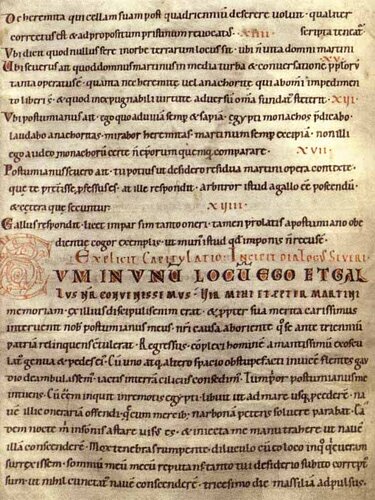 De heremita qui cellam suam post quadriennium deserere voluit · qualiter
correctus est & ad propositum pristinum revocatus · XIIII scriptatencat
Ubi dicit quod nullus fere morbe terrarum locus sit · ubi non vita domni martini
Ubi severus ait quod domnus martinus in media turba & conversatione ppłorū
tanta operatus est · quanta nec heremitę vel anachoritę qui absoni impedimen
to liberi s · & quod inexpugnabili virtute adversum omia fundat steterit · XVI
Ubi postumianus ait · ego quo adiuvā semp & sapiā · egypti monachos pdicabo ·
laudabo anachoritas · mirabor heremitas · martinum semp excipiā · non illi
ego audeo monachorū certe non eporum quemq comparare · XVII ·
Postumianus severo ait · tu potius ut desidero residua martini opera contexe
que te pstitisse pfessus es · at ille respondit · arbitror istud a gallo esse poscendū
& cetera que secuntur · XVIII
Gallus respondit · licet impar sim tanto oneri · tamen prolatis a postumiano obe
dientię cogor exemplis · ut munus istud qd imponis non recusem ·
Explicit Capitulatio · Incipit Dialogus Severi
CUM IN UNŪ LOCŪ EGO ET GAL
LUS NR CONVENISSEMUS · VIR MIHI ET PPTER MARTINI
memoriam · ex illius discipulis enim erat · & ppter sua merita carissimus
intervenit nob postumianus meus · nri causa ab oriente qo se ante trienniū
patria relinquens contulerat · Regressus · cōplexi hominē amantissimū exoscu
lati genua & pedes ei · cū uno at altero spacio obstupefacti invicē flentes gau
dio deambulassem · iactis in terrā ciliciis consedim · Tum por postumianus me
intuens · cū esse inqut in remotis egypti · libuit ut ad mare usq pcederē · na
vē illic onerariā offendi · que cum mercib narbonā petens solvere parabat · Ea
dem nocte in somnis astare visus es · & iniecta me manu trahere ut navē
illā conscenderē · Mox tenebras rumpente diluculo cū to loco inq quieveram
surrexissem · somniū mecū meū reputans tanto tui desiderio subito correpti
sum · ut nil cunctatus navē conscenderē · tricesimo die massiliā adpulsus ·